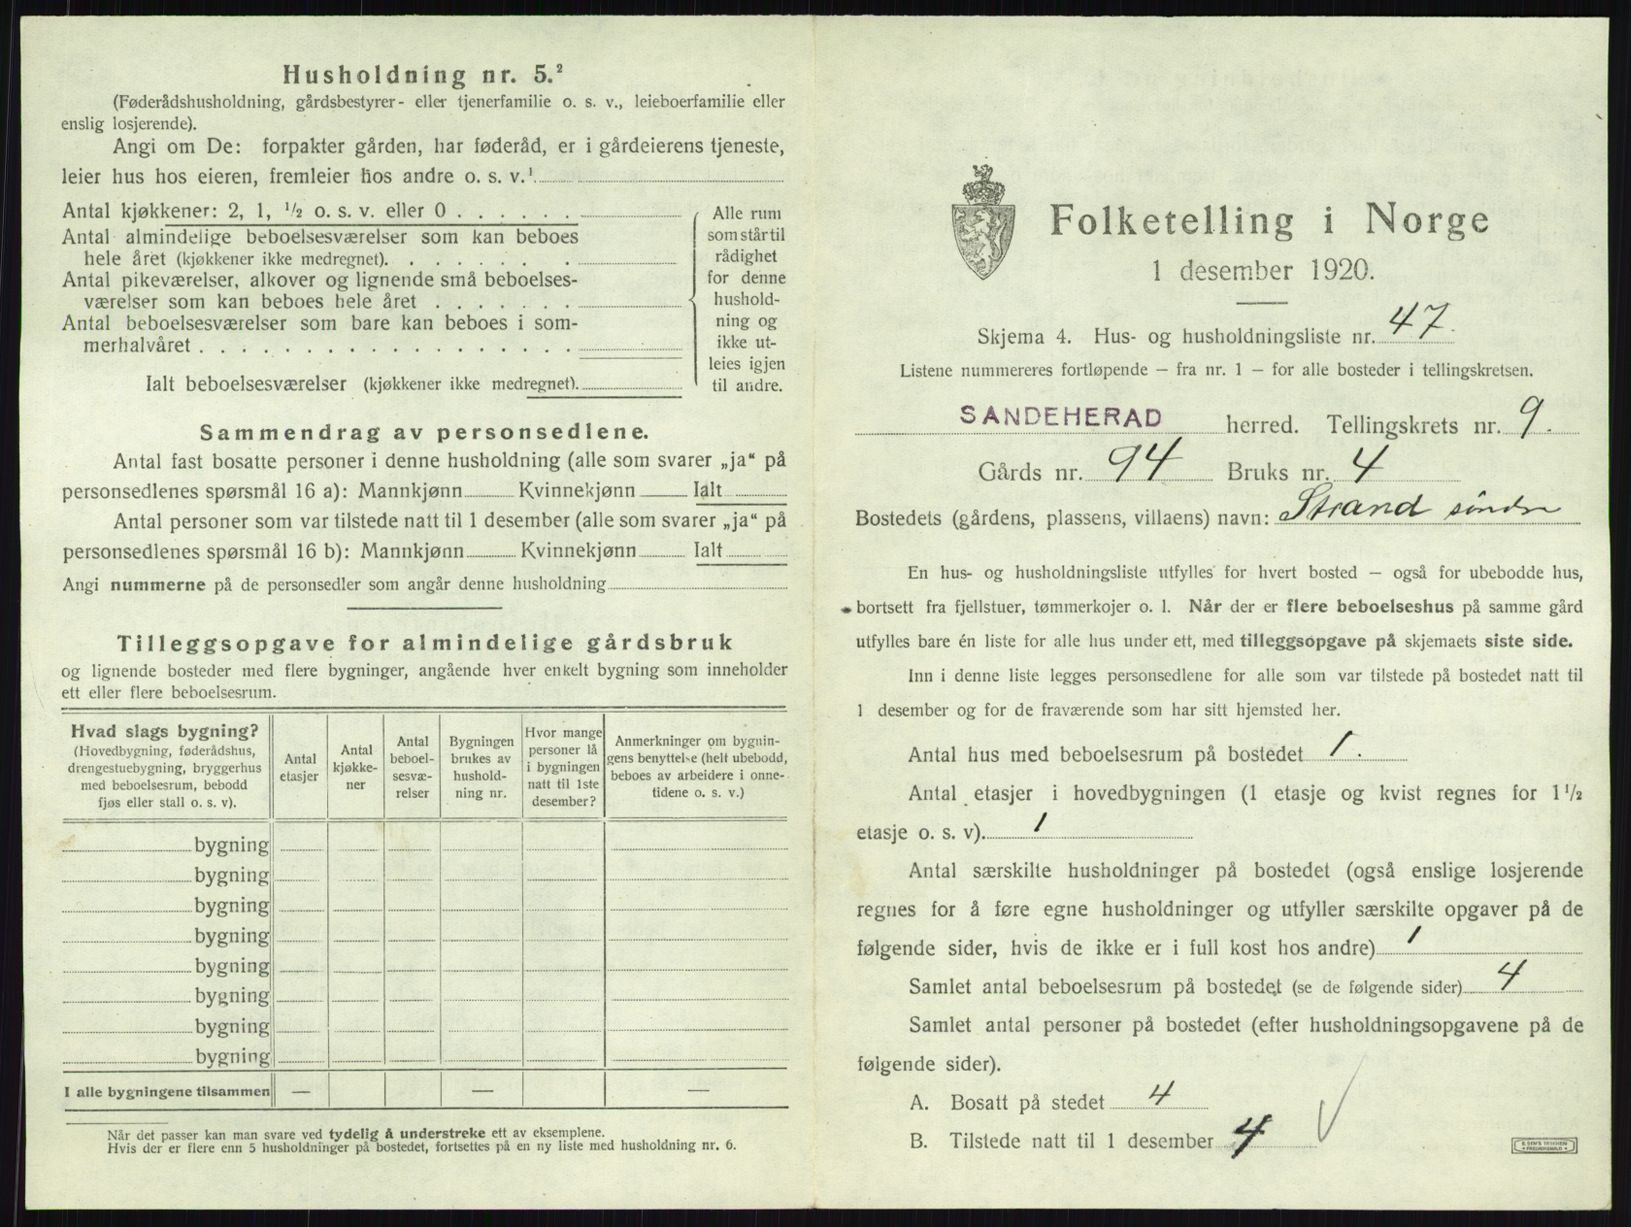 Husholdning nr. 5.²
(Føderådshusholdning, gårdsbestyrer- eller tjenerfamilie o. s. v., leieboerfamilie eller
enslig losjerende).
Angi om De: forpakter gården, har føderåd, er i gårdeierens tjeneste,
leier hus hos eieren, fremleier hos andre o. s. v.¹
Antal kjøkkener: 2, 1, ½ o. s. v. eller 0 . . . . . .
Antal almindelige beboelsesværelser som kan beboes
hele året (kjøkkener ikke medregnet). . . . . . . .
Antal pikeværelser, alkover og lignende små beboelses-
værelser som kan beboes hele året . . . . . . .
Antal beboelsesværelser som bare kan beboes i som-
merhalvåret . . . . . . . . . . . . . . . . . .
Ialt beboelsesværelser (kjøkkener ikke medregnet).
Alle rum
som står til
rådighet
for denne
hushold-
ning og
ikke ut-
leies igjen
til andre.
Sammendrag av personsedlene.
Antal fast bosatte personer i denne husholdning (alle som svarer „ja“ på
personsedlenes spørsmål 16 a): Mannkjønn Kvinnekjønn Ialt
Antal personer som var tilstede natt til 1 desember (alle som svarer „ja“ på
personsedlenes spørsmål 16 b): Mannkjønn Kvinnekjønn Ialt
Angi nummerne på de personsedler som angår denne husholdning
Tilleggsopgave for almindelige gårdsbruk
og lignende bosteder med flere bygninger, angående hver enkelt bygning som inneholder
ett eller flere beboelsesrum.
Hvad slags bygning?
(Hovedbygning, føderådshus,
drengestuebygning, bryggerhus
med beboelsesrum, bebodd
fjøs eller stall o. s. v).
Antal
etasjer
Antal
kjøkke-
ner
Antal
beboel-
sesvæ-
relser
Bygningen
brukes av
hushold-
ning nr.
Hvor mange
personer lå
i bygningen
natt til 1ste
desember?
Anmerkninger om bygnin-
gens benyttelse (helt ubebodd,
beboes av arbeidere i onne-
tidene o. s. v.)
bygning
bygning
bygning
bygning
bygning
bygning
bygning
bygning
I alle bygningene tilsammen — — —
Når det passer kan man svare ved tydelig å understreke ett av eksemplene.
Hvis der er flere enn 5 husholdninger på bostedet, fortsettes på en ny liste med husholdning nr. 6.
Folketelling i Norge
1 desember 1920.
Skjema 4. Hus- og husholdningsliste nr. 47.
Listene nummereres fortløpende — fra nr. 1 — for alle bosteder i tellingskretsen.
SANDEHERAD herred. Tellingskrets nr. 9.
Gårds nr. 94 Bruks nr. 4
Bostedets (gårdens, plassens, villaens) navn: Strand söndre
En hus- og husholdningsliste utfylles for hvert bosted — også for ubebodde hus,
bortsett fra fjellstuer, tømmerkojer o. l. Når der er flere beboelseshus på samme gård
utfylles bare én liste for alle hus under ett, med tilleggsopgave på skjemaets siste side.
Inn i denne liste legges personsedlene for alle som var tilstede på bostedet natt til
1 desember og for de fraværende som har sitt hjemsted her.
Antal hus med beboelsesrum på bostedet 1.
Antal etasjer i hovedbygningen (1 etasje og kvist regnes for 1 ½
etasje o. s. v). 1
Antal særskilte husholdninger på bostedet (også enslige losjerende
regnes for å føre egne husholdninger og utfyller særskilte opgaver på de
følgende sider, hvis de ikke er i full kost hos andre) 1
Samlet antal beboelsesrum på bostedet (se de følgende sider) 4
Samlet antal personer på bostedet (efter husholdningsopgavene på de
følgende sider).
A. Bosatt på stedet 4
B. Tilstede natt til 1 desember 4